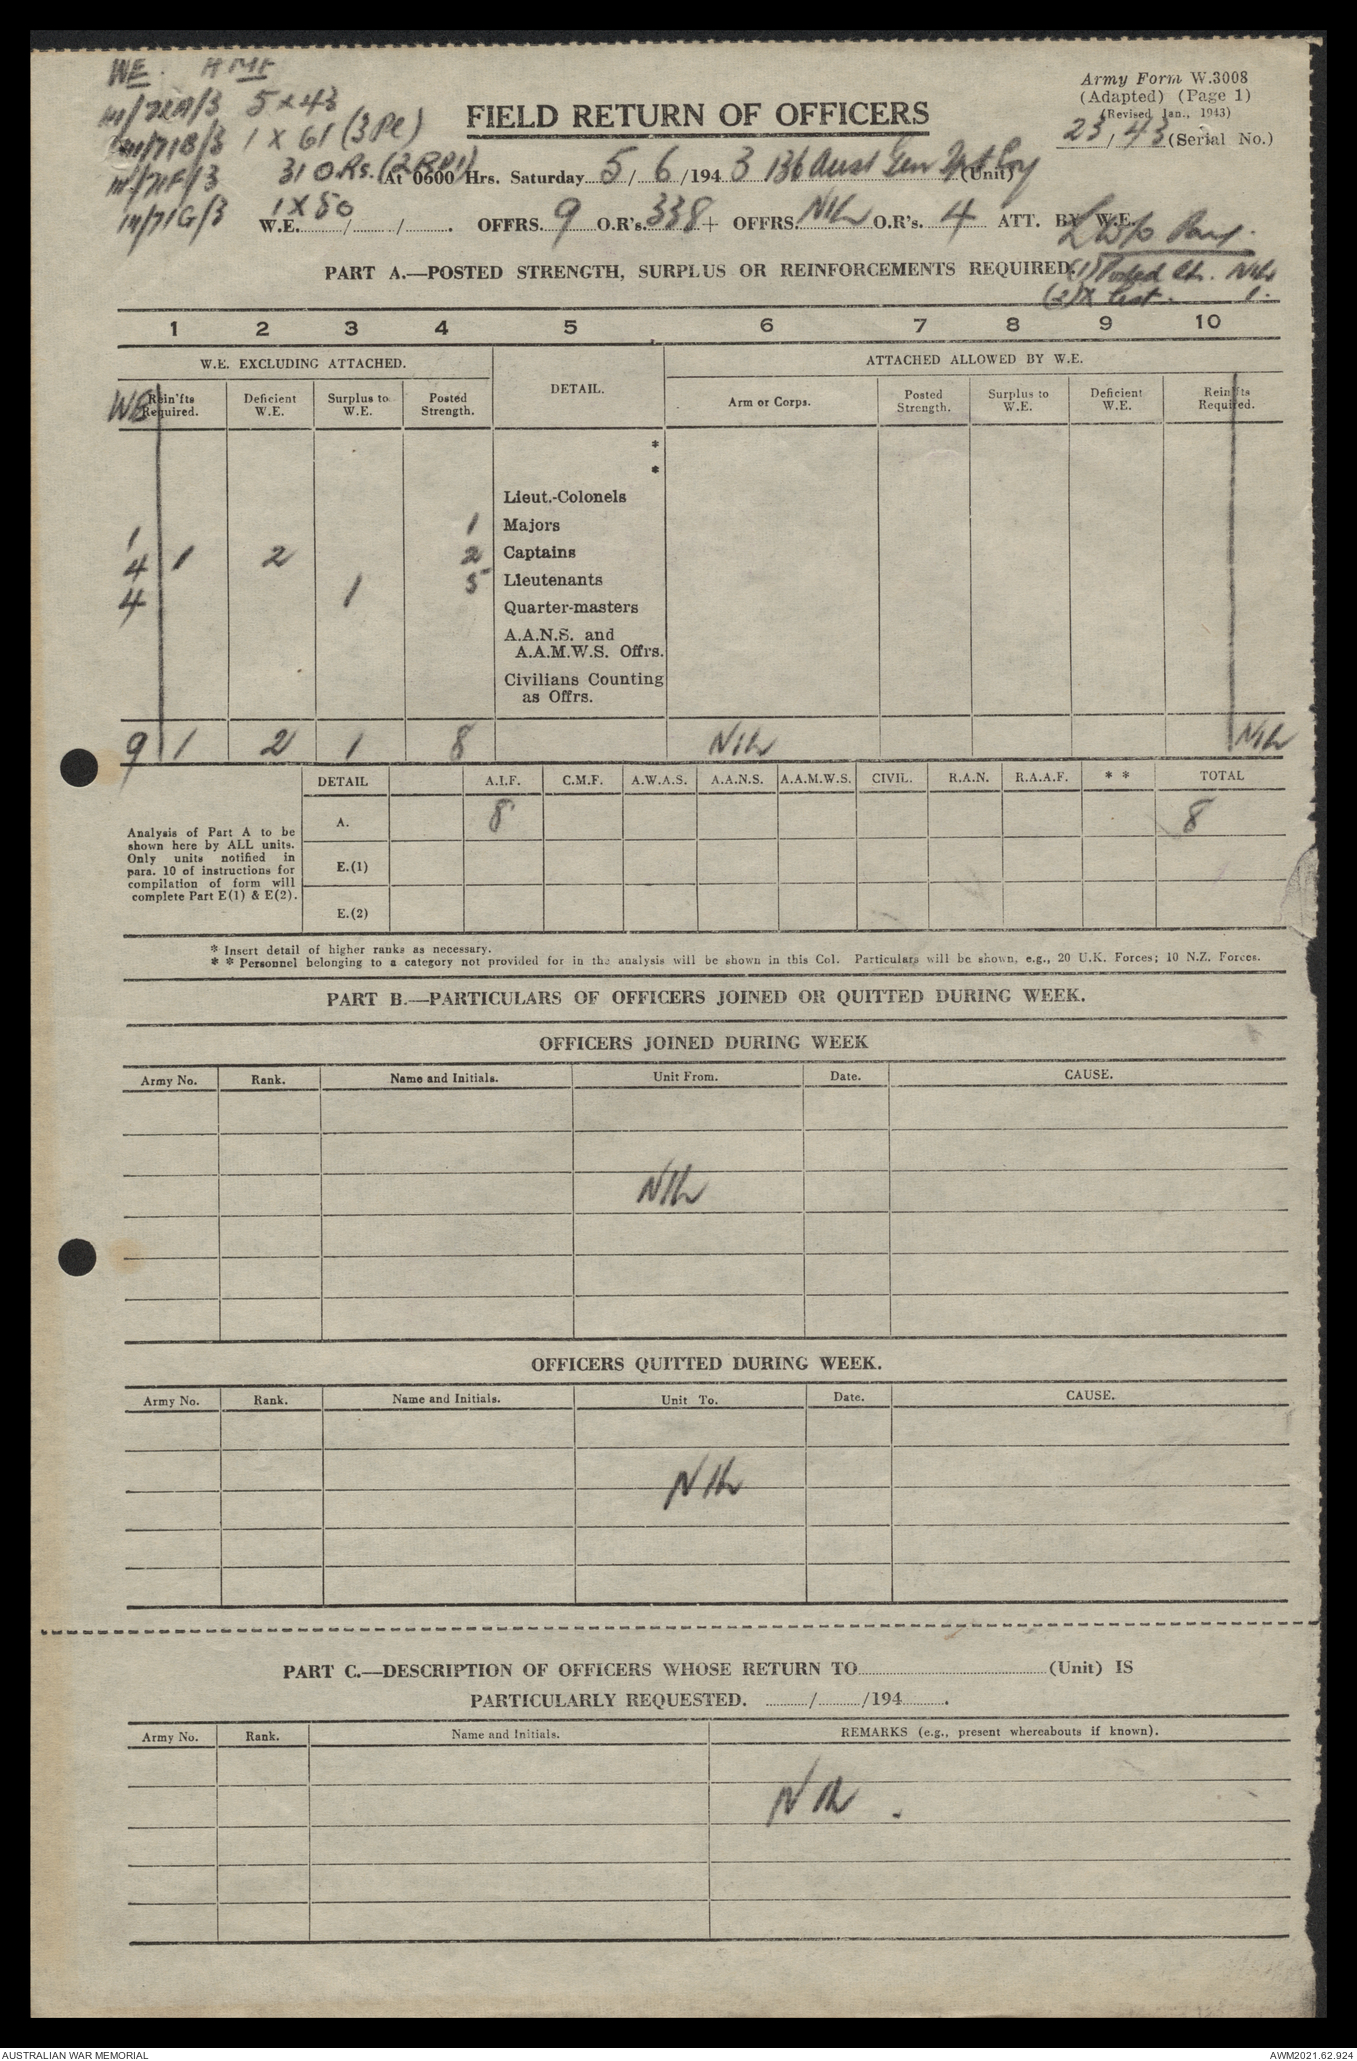 WE. AMF
111/72A/3 5 x 43
111/71B/3 1 X 61 (3 Pl)
111/71F/3 31 O.Rs. (2 RPI)
111/71G/3 1 X 50
Army Form W.3008
(Adapted) (Page 1)
(Revised Jan., 1943)
23/43 (Serial No.)
FIELD RETURN OF OFFICERS
At 0600 Hrs. Saturday 5/6/1943 136 Aust Gen Tpt Coy (Unit)
W.E. / / . OFFRS. 9 O.R's. 338 + OFFRS. NIL O.R's. 4 ATT. BY W.E.
LWO Pay.
(1) Posted St. NIL
(2) X List. 1.
PART A.—POSTED STRENGTH, SURPLUS OR REINFORCEMENTS REQUIRED.
1 2 3 4 5 6 7 8 9 10
W.E. EXCLUDING ATTACHED. DETAIL. ATTACHED ALLOWED BY W.E.
WE Rein'fts Required. Deficient W.E. Surplus to W.E. Posted Strength. Arm or Corps. Posted Strength. Surplus to W.E. Deficient W.E. Rein'fts Required.
*
*
Lieut.-Colonels
1 1 Majors
4 1 2 2 Captains
4 1 5 Lieutenants
Quarter-masters
A.A.N.S. and
A.A.M.W.S. Offrs.
Civilians Counting
as Offrs.
9 1 2 1 8 NIL NIL
DETAIL A.I.F. C.M.F. A.W.A.S. A.A.N.S. A.A.M.W.S. CIVIL. R.A.N. R.A.A.F. * * TOTAL
Analysis of Part A to be
shown here by ALL units.
Only units notified in
para. 10 of instructions for
compilation of form will
complete Part E(1) & E(2).
A. 8 8
E.(1)
E.(2)
* Insert detail of higher ranks as necessary.
* * Personnel belonging to a category not provided for in the analysis will be shown in this Col. Particulars will be shown, e.g., 20 U.K. Forces; 10 N.Z. Forces.
PART B.—PARTICULARS OF OFFICERS JOINED OR QUITTED DURING WEEK.
OFFICERS JOINED DURING WEEK
Army No. Rank. Name and Initials. Unit From. Date. CAUSE.
NIL
OFFICERS QUITTED DURING WEEK.
Army No. Rank. Name and Initials. Unit To. Date. CAUSE.
NIL
PART C.—DESCRIPTION OF OFFICERS WHOSE RETURN TO (Unit) IS
PARTICULARLY REQUESTED. / /194 .
Army No. Rank. Name and Initials. REMARKS (e.g., present whereabouts if known).
NIL.
AUSTRALIAN WAR MEMORIAL
AWM2021.62.924